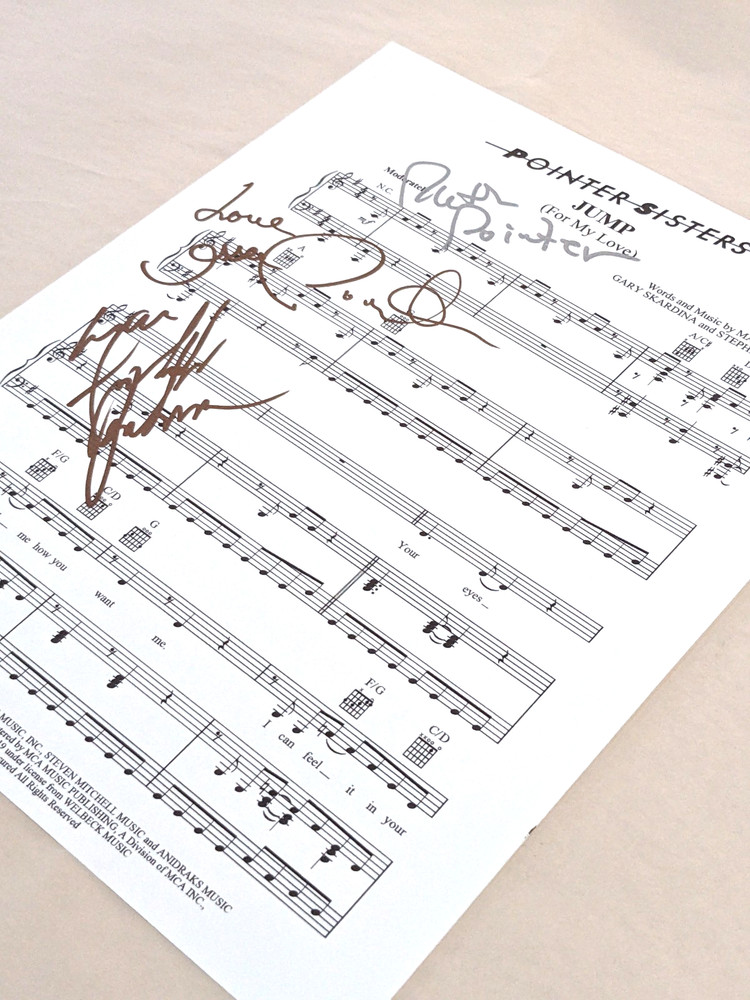 POINTER SISTERS
JUMP
(For My Love)
Moderately
N.C.
Ruth
Pointer
Words and Music by
GARY SKARDINA and STEPH
mf
Love
A
A/C#
F/G
C/D
G
Your eyes_
me how you want me.
F/G
C/D
I can feel_ it in your
MUSIC, INC., STEVEN MITCHELL MUSIC and ANIDRAKS MUSIC
by MCA MUSIC PUBLISHING, A Division of MCA INC.,
under license from WELBECK MUSIC
All Rights Reserved